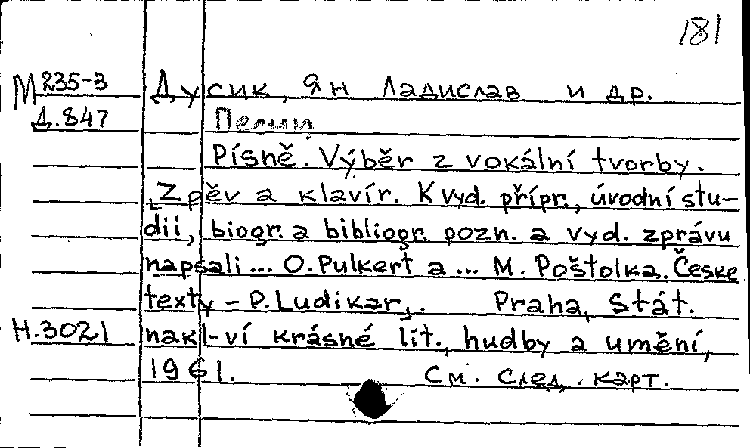 181
М 235-3 Дусик, Ян Ладислав и др.
Д.847 Песни
Písně. Výběr z vokální tvorby.
Zpěv a klavír. K vyd. přípr., úvodní stu-
dii, biogr. a bibliogr. pozn. a vyd. zprávu
napsali... O. Pulkert a... M. Poštolka. České
texty – P. Ludikar,. Praha, Stát.
Н.3021 nakl-ví krásné lit., hudby a umění,
1961. См. след. карт.